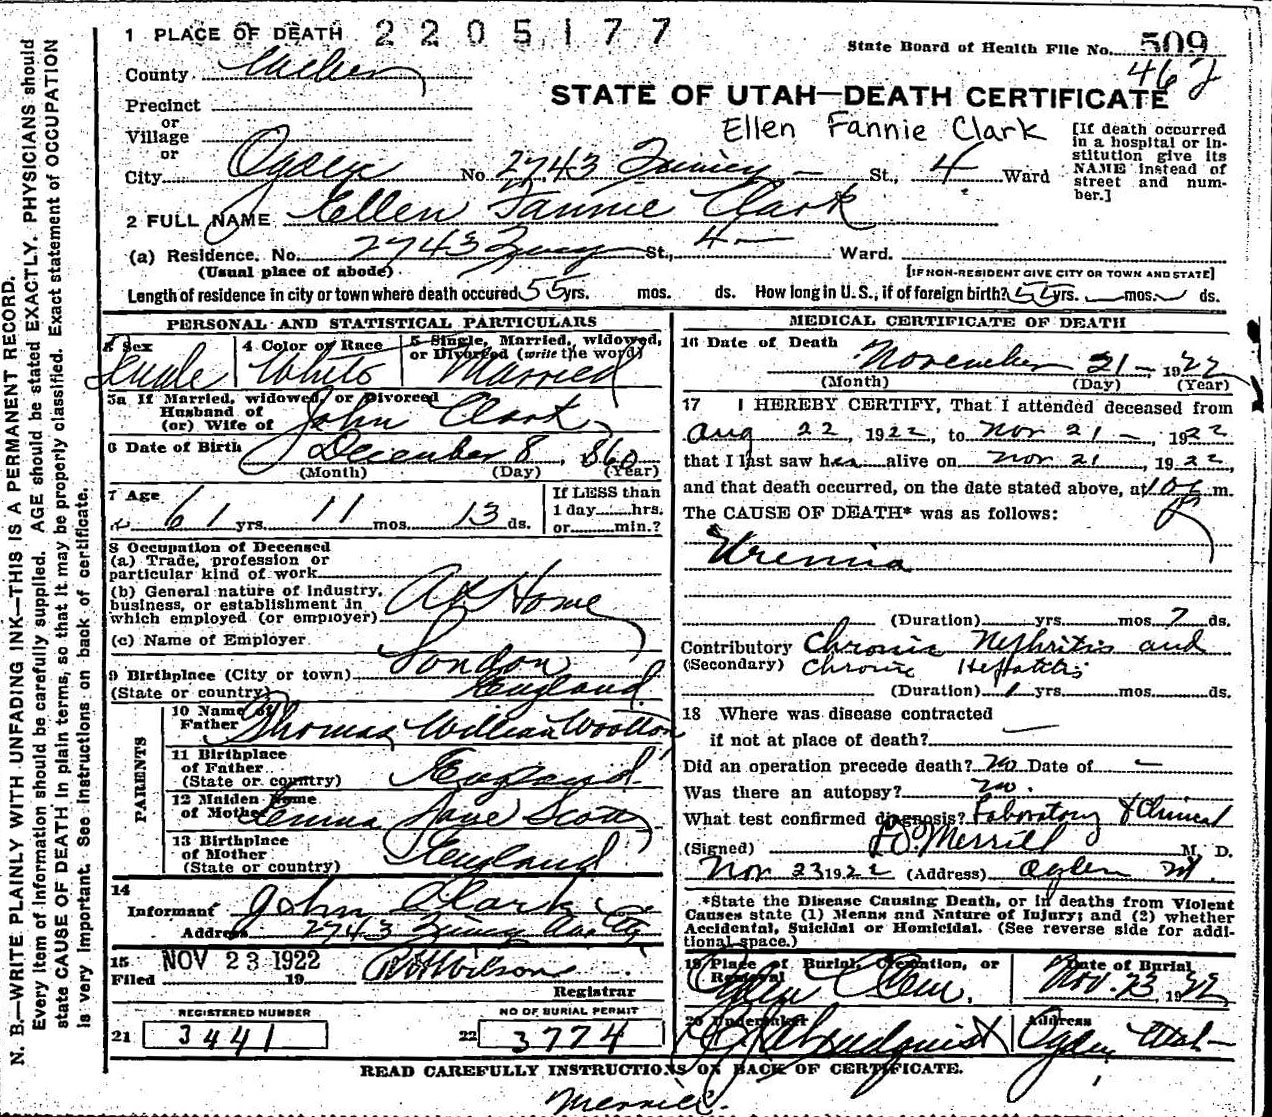 1 PLACE OF DEATH 2205177
State Board of Health File No. 509
462
County Weber
STATE OF UTAH—DEATH CERTIFICATE
Precinct
or
Village
or
Ellen Fannie Clark
[If death occurred in a hospital or institution give its NAME instead of street and number.]
City Ogden No. 2743 Quincy St., 4 Ward
2 FULL NAME Ellen Fannie Clark
(a) Residence. No. 2743 Quincy St., 4 Ward.
(Usual place of abode) [IF NON-RESIDENT GIVE CITY OR TOWN AND STATE]
Length of residence in city or town where death occured 55 yrs. mos. ds. How long in U.S., if of foreign birth? 55 yrs. — mos. ds.
PERSONAL AND STATISTICAL PARTICULARS
3 Sex
Female
4 Color or Race
White
5 Single, Married, widowed, or Divorced (write the word)
Married
5a If Married, widowed, or Divorced
Husband of
(or) Wife of John Clark
6 Date of Birth December 8, 1860
(Month) (Day) (Year)
7 Age
61 yrs. 11 mos. 13 ds.
If LESS than
1 day hrs.
or min.?
8 Occupation of Deceased
(a) Trade, profession or
particular kind of work
(b) General nature of Industry,
business, or establishment in
which employed (or employer) At Home
(c) Name of Employer
9 Birthplace (City or town) London
(State or country) England
PARENTS
10 Name of
Father Thomas William Wootton
11 Birthplace
of Father
(State or country) England
12 Maiden Name
of Mother Emma Jane Scott
13 Birthplace
of Mother
(State or country) England
14
Informant John Clark
Address 2743 Quincy Ave City
15 NOV 23 1922
Filed 19
Wilson
Registrar
REGISTERED NUMBER
21 3441
NO OF BURIAL PERMIT
22 3774
MEDICAL CERTIFICATE OF DEATH
16 Date of Death November 21 — 1922
(Month) (Day) (Year)
17 I HEREBY CERTIFY, That I attended deceased from
Aug 22, 1922, to Nov 21 —, 1922
that I last saw her alive on Nov 21, 1922,
and that death occurred, on the date stated above, at 10 P m.
The CAUSE OF DEATH* was as follows:
Uremia
(Duration) yrs. mos. 7 ds.
Contributory Chronic Nephritis and
(Secondary) Chronic Hepatitis
(Duration) 1 yrs. mos. ds.
18 Where was disease contracted
if not at place of death? —
Did an operation precede death? No Date of —
Was there an autopsy? No.
What test confirmed diagnosis? Laboratory & Clinical
(Signed) Merrill M. D.
Nov 23 1922 (Address) Ogden Ut.
*State the Disease Causing Death, or in deaths from Violent
Causes state (1) Means and Nature of Injury; and (2) whether
Accidental, Suicidal or Homicidal. (See reverse side for addi-
tional space.)
19 Place of Burial, Cremation, or
Removal
Ogden Cem.
Date of Burial
Nov. 23, 1922
20 Undertaker
Lindquist
Address
Ogden Utah
READ CAREFULLY INSTRUCTIONS ON BACK OF CERTIFICATE.
Merrill.
N. B.—WRITE PLAINLY WITH UNFADING INK—THIS IS A PERMANENT RECORD.
Every item of information should be carefully supplied. AGE should be stated EXACTLY. PHYSICIANS should
state CAUSE OF DEATH in plain terms, so that it may be properly classified. Exact statement of OCCUPATION
is very important. See instructions on back of certificate.